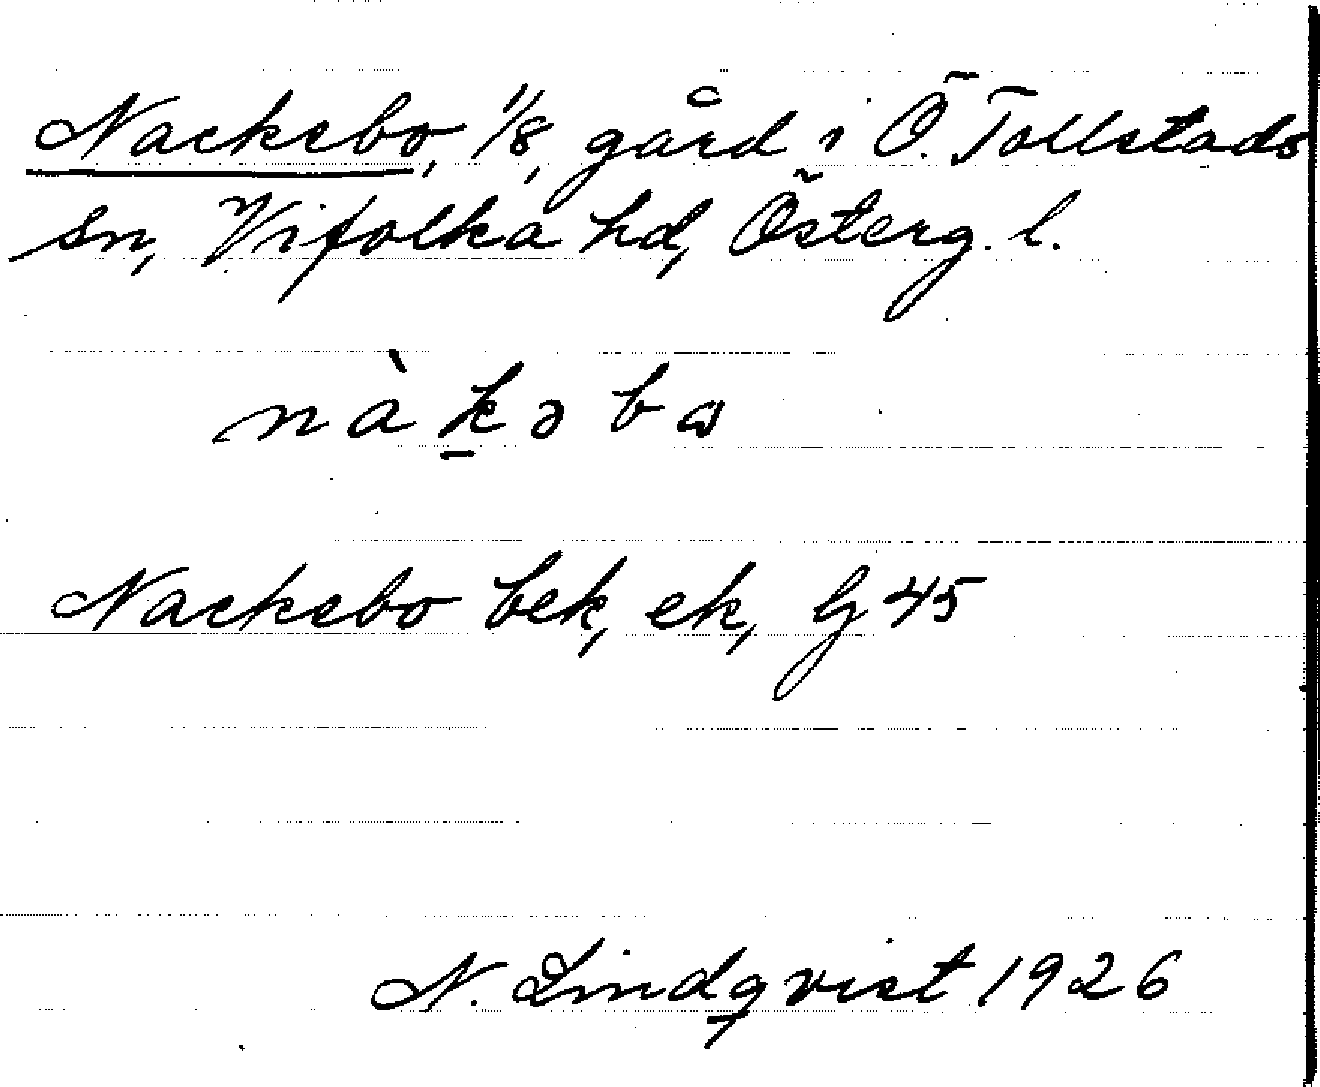 Nackebo, 1/8, gård i Ö. Tollstads
sn, Vifolka hd, Österg. l.
nàk̲əbω
Nackebo bek, ek, G 45
N. Lindqvist 1926